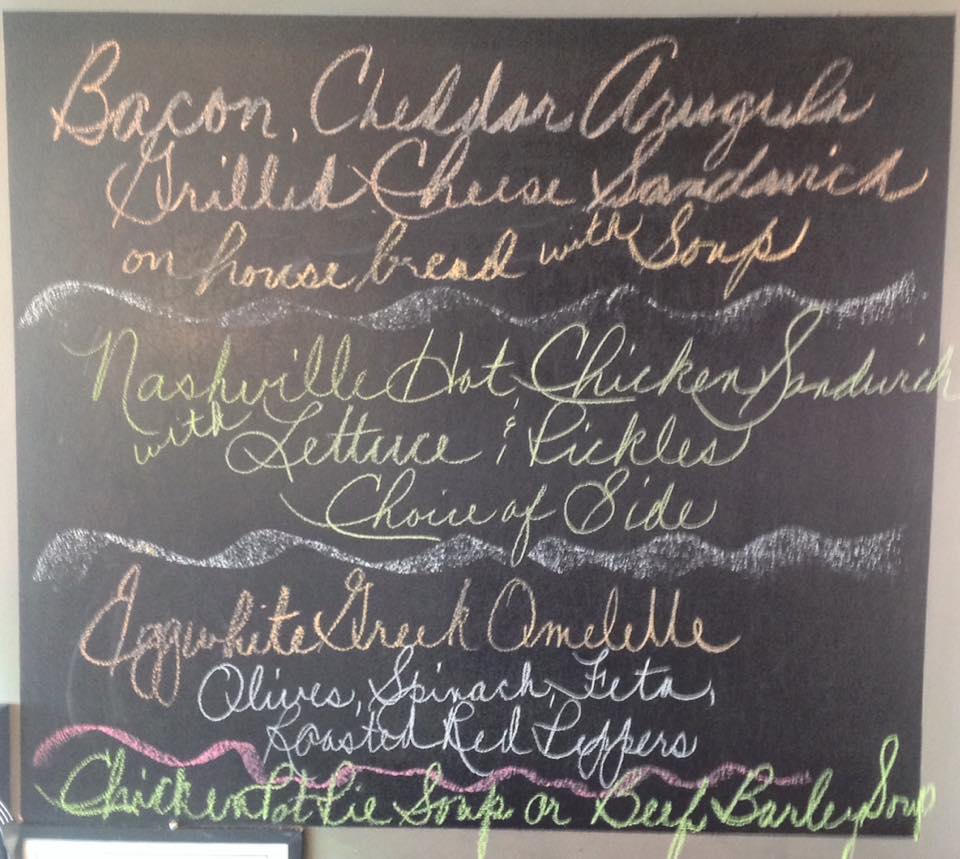 Bacon, Cheddar Arugula
Grilled Cheese Sandwich
on house bread with Soup
Nashville Hot Chicken Sandwich
with Lettuce & Pickles
Choice of Side
Eggwhite Greek Omelette
Olives, Spinach, Feta,
Roasted Red Peppers
Chicken Pot Pie Soup or Beef Barley Soup